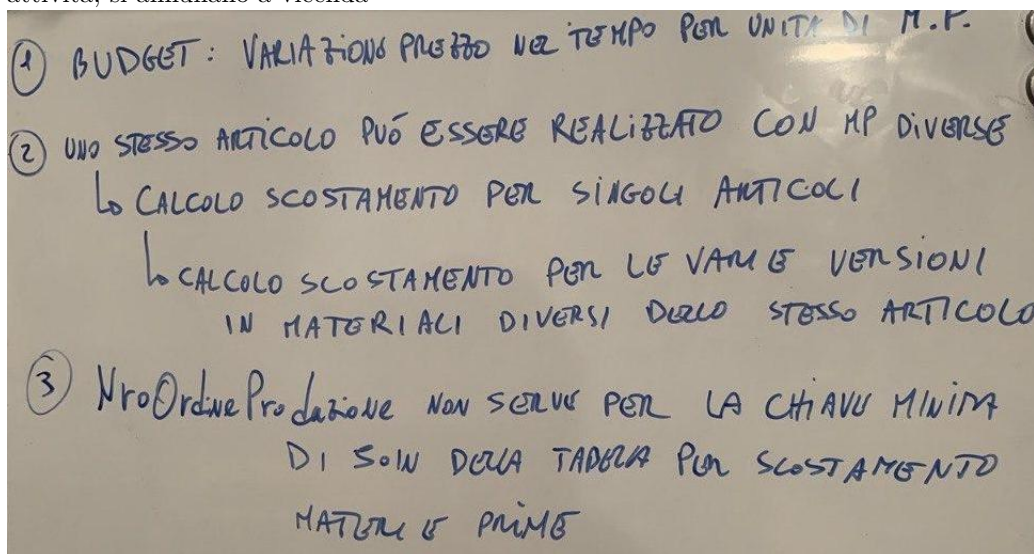 attività, si annullano a vicenda
① BUDGET: VARIAZIONE PREZZO NEL TEMPO PER UNITÀ DI M.P.
② UNO STESSO ARTICOLO PUÓ ESSERE REALIZZATO CON MP DIVERSE
↳ CALCOLO SCOSTAMENTO PER SINGOLI ARTICOLI
↳ CALCOLO SCOSTAMENTO PER LE VARIE VERSIONI
IN MATERIALI DIVERSI DELLO STESSO ARTICOLO
③ NroOrdineProduzione NON SERVE PER LA CHIAVE MINIMA
DI JOIN DELLA TABELLA PER SCOSTAMENTO
MATERIE PRIME